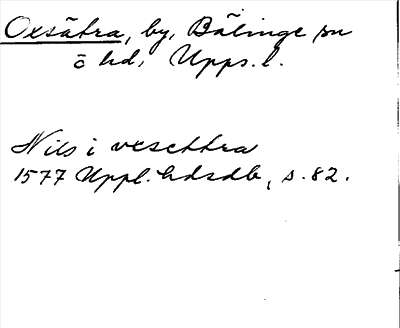 Oxsätra, by, Bälinge sn
o hd, Upps. l.
Nils i vxsettra
1577 Uppl. hdsdb, s. 82.